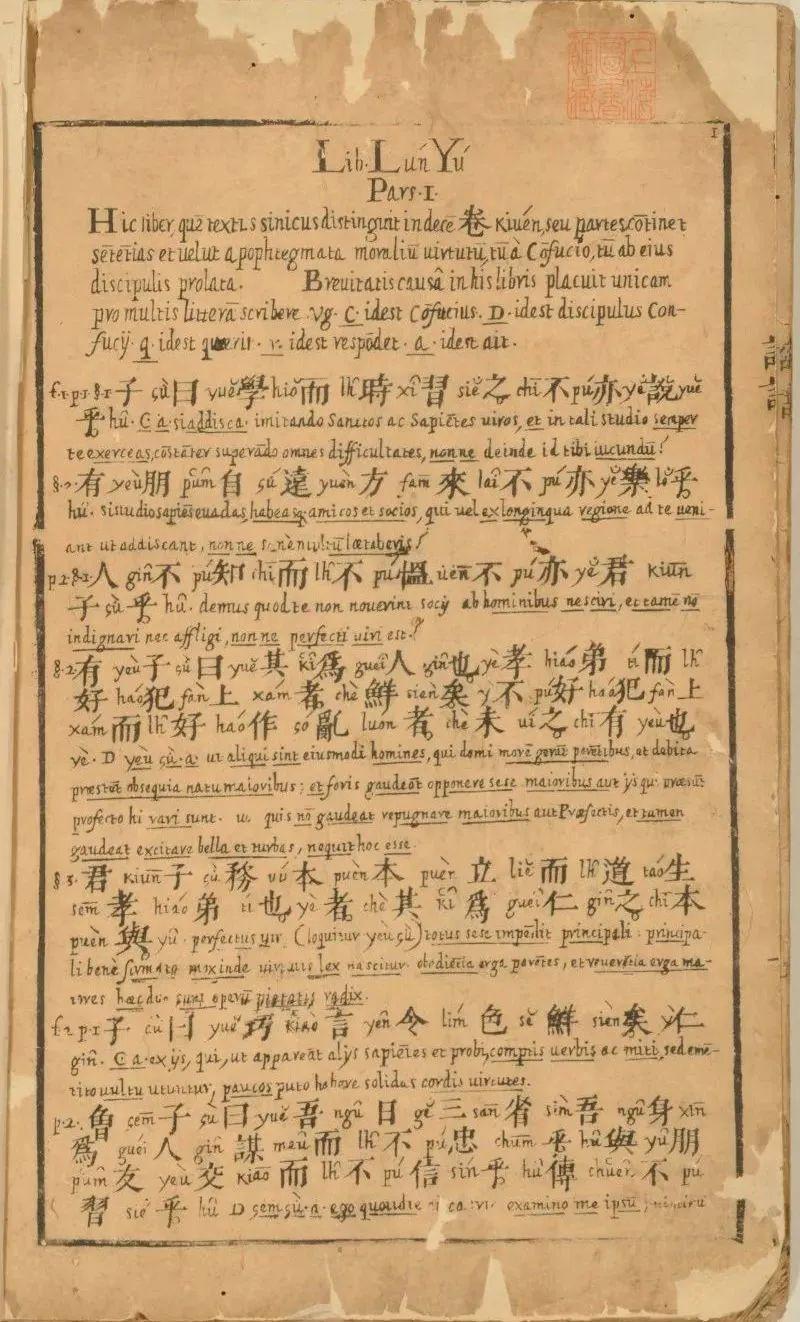 1
Lib. Lún Yú
Pars. I.
Hic liber quē textus sinicus distinguit in decē 卷 Kiuén, seu partes, cōtinet
sētētias et uelut apophtegmata moraliū uirtutū, tū à Cōfucio, tū ab eius
discipulis prolata. Breuitatis causâ in his libris placuit unicam
pro multis litterā scribere Vg. C. idest Cōfucius. D. idest discipulus Con-
fucÿ. q. idest quærit. r. idest respōdet. a. idest ait.
f.1. p.1. §.1. 子 çù 曰 yuĕ 學 hiŏ 而 lh̑ 時 xî 習 siĕ 之 chī 不 pú 亦 yĕ 說 yuĕ
乎 hû. C. a. si addisca. imitando Sanctos ac Sapiētes uiros, et in tali studio semper
te exerceas, cōstāter superādo omnes difficultates, nonne deinde id tibi iucundū?
§.2. 有 yeù 朋 pûm 自 çú 遠 yuèn 方 fam 來 laî 不 pú 亦 yĕ 樂 lŏ 乎
hû. si studio sapiēs euadas, habeasq. amicos et socios, qui uel ex longinqua regione ad te ueni-
ant ut addiscant, nonne lætaberis?
p.2. §.1. 人 gîn 不 pú 知 chī 而 lh̑ 不 pú 慍 uén 不 pú 亦 yĕ 君 kiūn
子 çù 乎 hû. demus quod te non nouerint socÿ ab hominibus nesciri, et tamē nō
indignari nec affligi, nonne perfecti uiri est?
§.2. 有 yeù 子 çù 曰 yuĕ 其 kî 爲 gueî 人 gîn 也 yè 孝 hiáo 弟 tí 而 lh̑
好 háo 犯 fàn 上 xám 者 chè 鮮 sièn 矣 y̆ 不 pú 好 háo 犯 fàn 上
xám 而 lh̑ 好 háo 作 çŏ 亂 luón 者 chè 未 uí 之 chī 有 yeù 也
yè. D yeù çù. a. ut aliqui sint eiusmodi homines, qui domi morē gerāt parētibus, et debita
præstēt obsequia natu maioribus; et foris gaudeāt opponere sese maioribus aut ÿs qui præsūt
profecto hi rari sunt. quis nō gaudeat repugnare maioribus aut Præfectis, et tamen
gaudeat excitare bella et turbas, nequit hoc esse.
§.3. 君 kiūn 子 çù 務 vú 本 puèn 本 puèn 立 liĕ 而 lh̑ 道 táo 生
sēm 孝 hiáo 弟 tí 也 yè 者 chè 其 kî 爲 gueî 仁 gîn 之 chī 本
puèn 與 yû. perfectus uir (loquitur yeù çù) totus sese impēdit principali. principa-
li benè firmato mox inde uirtutis lex nascitur. obediētia erga parētes, et reuerētia erga ma-
iores hæc duo sunt operū pietatis radix.
f.2. p.1. 子 çù 曰 yuĕ 巧 kiào 言 yên 令 lím 色 sĕ 鮮 sièn 矣 y̆ 仁
gîn. C. a. ex ÿs, qui, ut appareāt alÿs sapiētes et probi, comptis uerbis ac miti, sed emē-
tito uultu utuntur, paucos puto habere solidas cordis uirtutes.
p.2. 曾 çēm 子 çù 曰 yuĕ 吾 ngû 日 gĕ 三 sān 省 sìm 吾 ngû 身 xīn
爲 guéi 人 gîn 謀 meû 而 lh̑ 不 pú 忠 chūm 乎 hû 與 yû 朋
pûm 友 yeù 交 kiāo 而 lh̑ 不 pú 信 sín 乎 hû 傳 chuên 不 pú
習 siĕ 乎 hû D çem çù. a. ego quotidie examino me ipsū